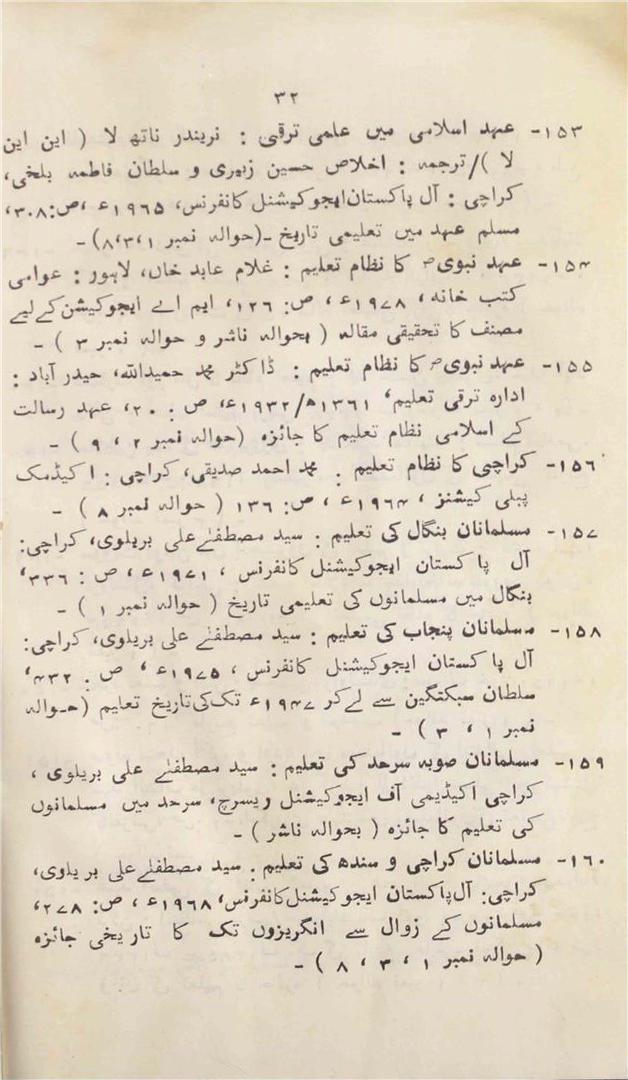 ۳۲
۱۵۳- عہد اسلامی میں علمی ترقی : نریندر ناتھ لا ( این این
لا )/ترجمہ : اخلاص حسین زبیری و سلطان فاطمہ بلخی،
کراچی : آل پاکستان ایجوکیشنل کانفرنس، ۱۹۶۵ء ،ص:۳۰۸،
مسلم عہد میں تعلیمی تاریخ -(حوالہ نمبر ۸،۳،۱)-
۱۵۴- عہد نبویؐ کا نظام تعلیم : غلام عابد خاں، لاہور : عوامی
کتب خانہ ، ۱۹۷۸ء ، ص: ۱۲۶، ایم اے ایجوکیشن کے لیے
مصنف کا تحقیقی مقالہ ( بحوالہ ناشر و حوالہ نمبر ۳ ) -
۱۵۵- عہد نبویؐ کا نظام تعلیم : ڈاکٹر محمد حمیداللہ، حیدر آباد :
ادارہ ترقی تعلیم، ۱۳۶۱ھ/۱۹۳۲ء، ص : ۲۰، عہد رسالت
کے اسلامی نظام تعلیم کا جائزہ (حوالہ نمبر ۲ ، ۹ ) -
۱۵۶- کراچی کا نظام تعلیم : محمد احمد صدیقی، کراچی : اکیڈمک
پبلی کیشنز ، ۱۹۶۴ء ، ص: ۱۳۶ ( حوالہ نمبر ۸ ) -
۱۵۷- مسلمانان بنگال کی تعلیم : سید مصطفٰے علی بریلوی، کراچی:
آل پاکستان ایجوکیشنل کانفرنس ، ۱۹۷۱ء ، ص : ۳۳۶،
بنگال میں مسلمانوں کی تعلیمی تاریخ ( حوالہ نمبر ۱ ) -
۱۵۸- مسلمانان پنجاب کی تعلیم : سید مصطفٰے علی بریلوی، کراچی:
آل پاکستان ایجوکیشنل کانفرنس ، ۱۹۷۵ء ، ص : ۴۳۲،
سلطان سبکتگین سے لے کر ۱۹۴۷ء تک کی تاریخ تعلیم (حوالہ
نمبر ۱ ، ۳ ) -
۱۵۹- مسلمانان صوبہ سرحد کی تعلیم : سید مصطفٰے علی بریلوی ،
کراچی اکیڈیمی آف ایجوکیشنل ریسرچ، سرحد میں مسلمانوں
کی تعلیم کا جائزہ ( بحوالہ ناشر ) -
۱۶۰- مسلمانان کراچی و سندھ کی تعلیم : سید مصطفٰے علی بریلوی،
کراچی: آل پاکستان ایجوکیشنل کانفرنس، ۱۹۶۸ء ، ص: ۲۷۸،
مسلمانوں کے زوال سے انگریزوں تک کا تاریخی جائزہ
( حوالہ نمبر ۱ ، ۳ ، ۸ ) -